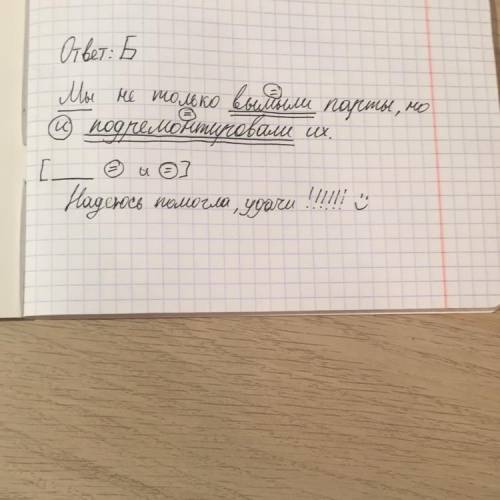 Ответ: Б
Мы не только вымыли парты, но
и подремонтировали их.
[___ = и =]
Надеюсь помогла, удачи !!!!!!